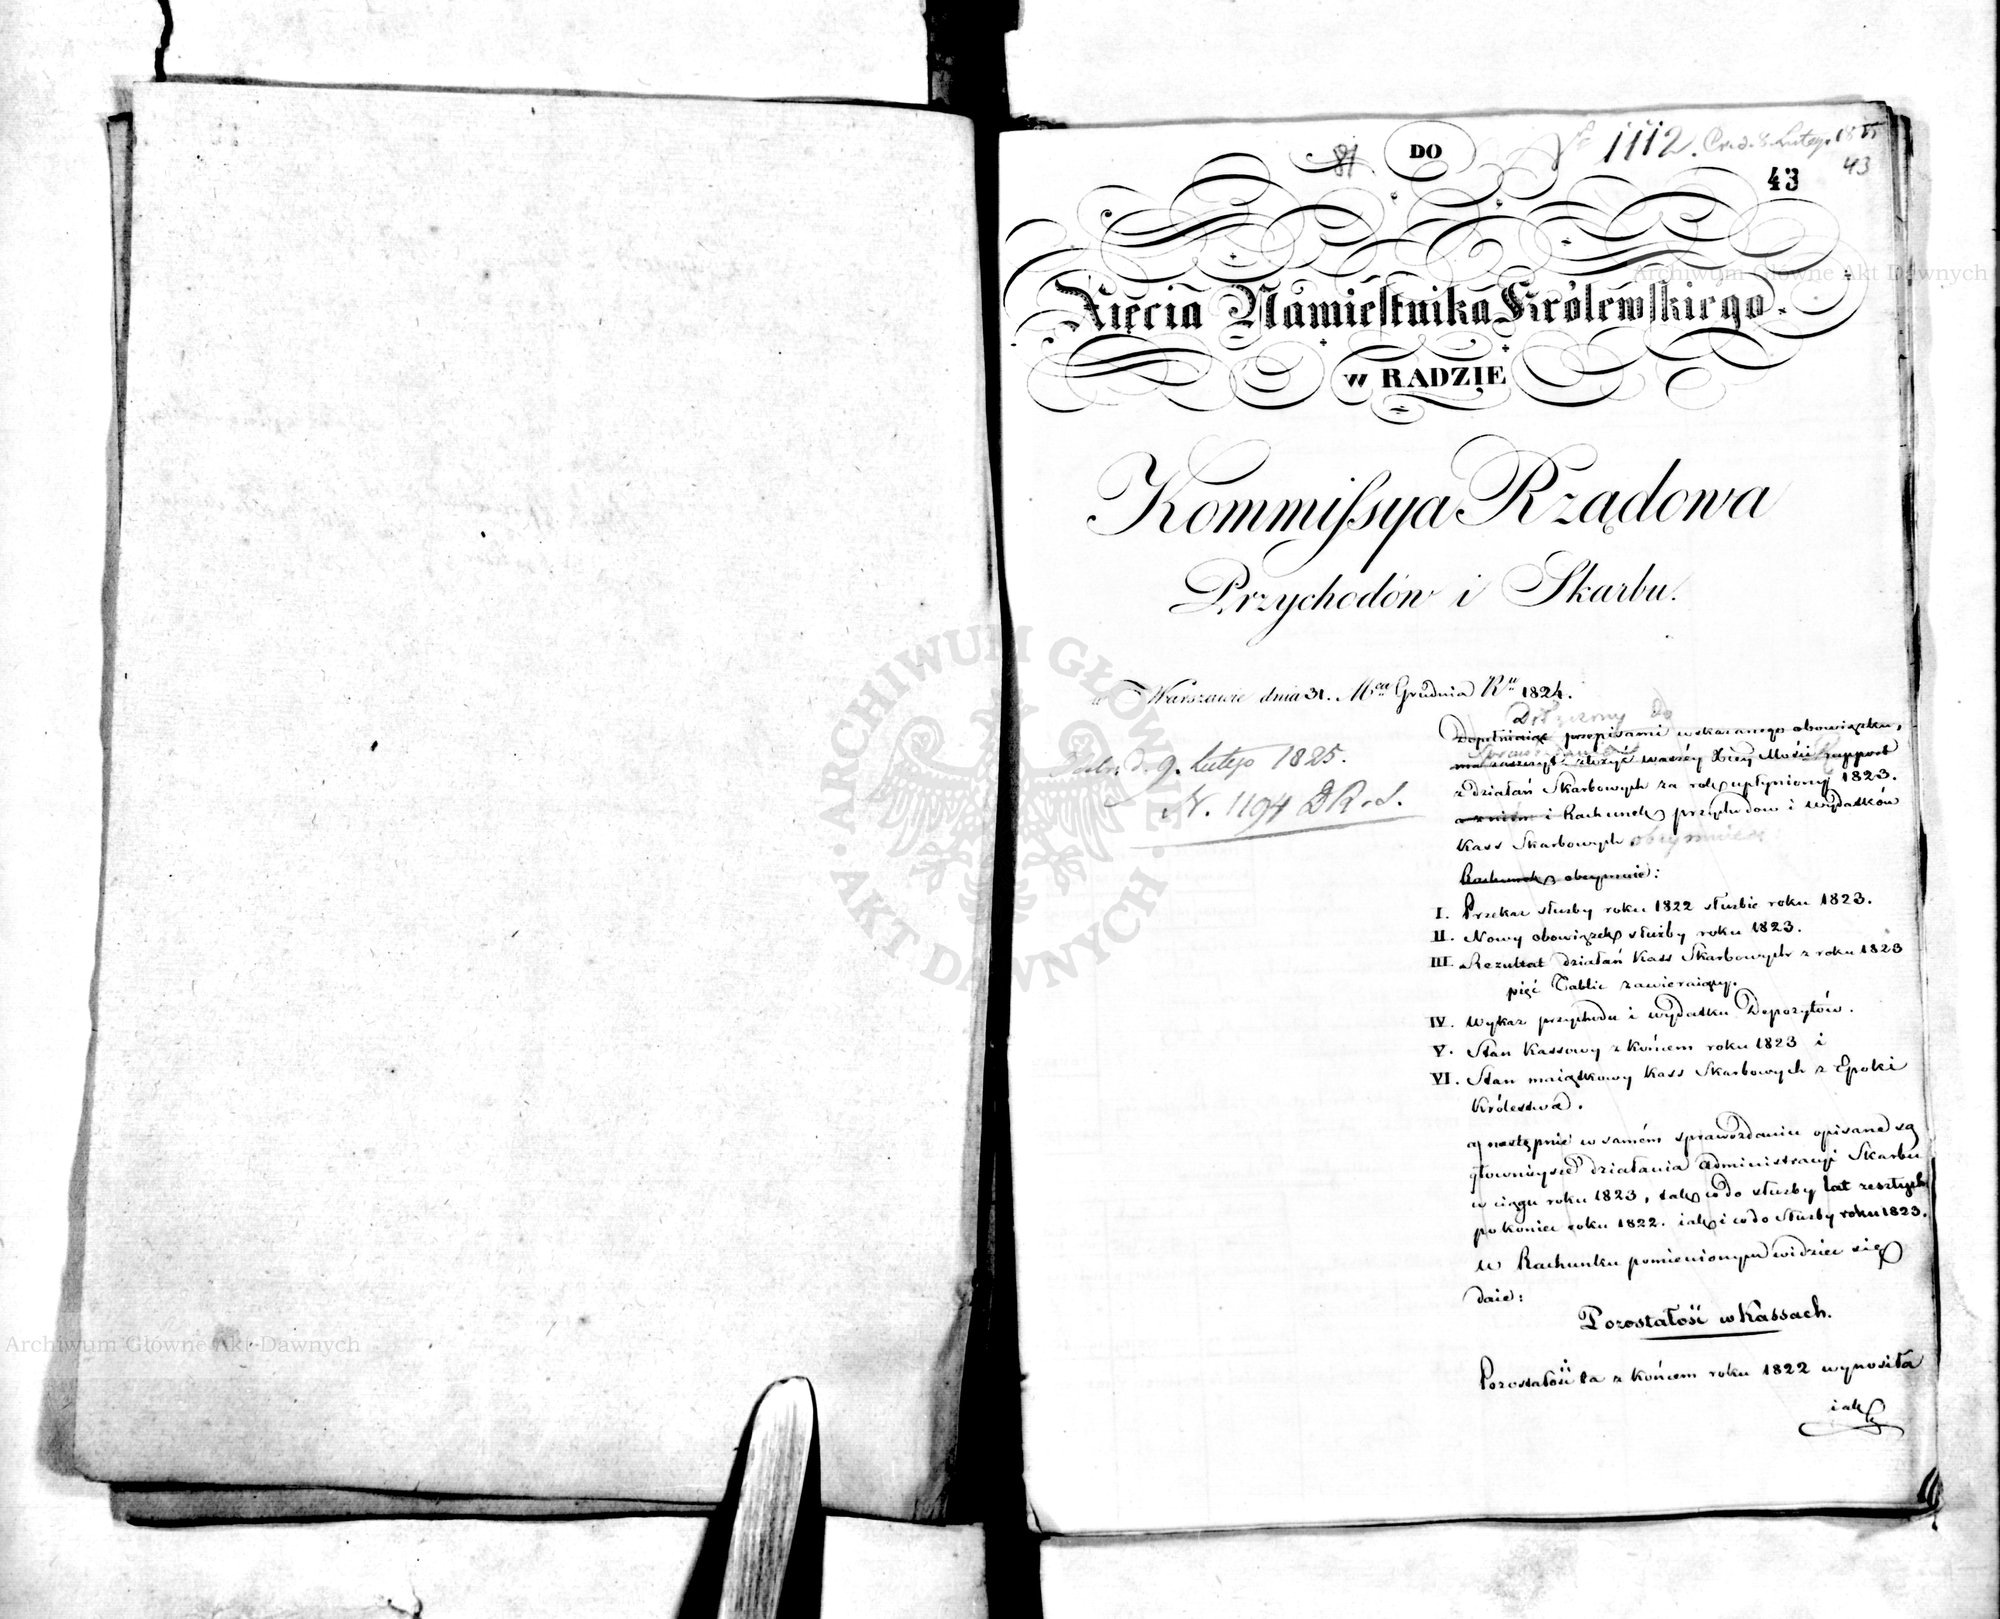 81
DO
No 1112. Pr. d. 8 Lutego 1825
43
43
Xięcia Namiestnika Królewskiego.
w RADZIE
Kommissya Rządowa
Przychodów i Skarbu.
w Warszawie dnia 31. Mca Grudnia Ru 1824.
do
Dopełniaiąc przepisami wskazanego obowiązku,
złożyć waszey Xcey Mości Rapport
z działań Skarbowych za rok upłyniony 1823.
a z nim i Rachunek przychodów i wydatków
Kass Skarbowych obeymuie
Rachunek obeymuie:
d. 9. Lutego 1825.
N. 1194 D R. S.
I. Przekaz służby roku 1822 służbie roku 1823.
II. Nowy obowiązek służby roku 1823.
III. Rezultat działań Kass Skarbowych z roku 1823
pięć Tablic zawieraiący.
IV. Wykaz przychodu i wydatku Depozytów.
V. Stan Kassowy z końcem roku 1823 i
VI. Stan maiątkowy Kass Skarbowych z Epoki
Królestwa.
a następnie w samém sprawozdaniu opisane są
głownieysze działania administracyi Skarbu
w ciągu roku 1823, tak co do służby lat zeszłych
po koniec roku 1822. iak i co do służby roku 1823.
W Rachunku pomienionym widzieć się
daie:
Pozostałość w Kassach.
Pozostałość ta z końcem roku 1822 wynosiła
iak
Archiwum Główne Akt Dawnych
ARCHIWUM GŁÓWNE
AKT DAWNYCH
Archiwum Główne Akt Dawnych